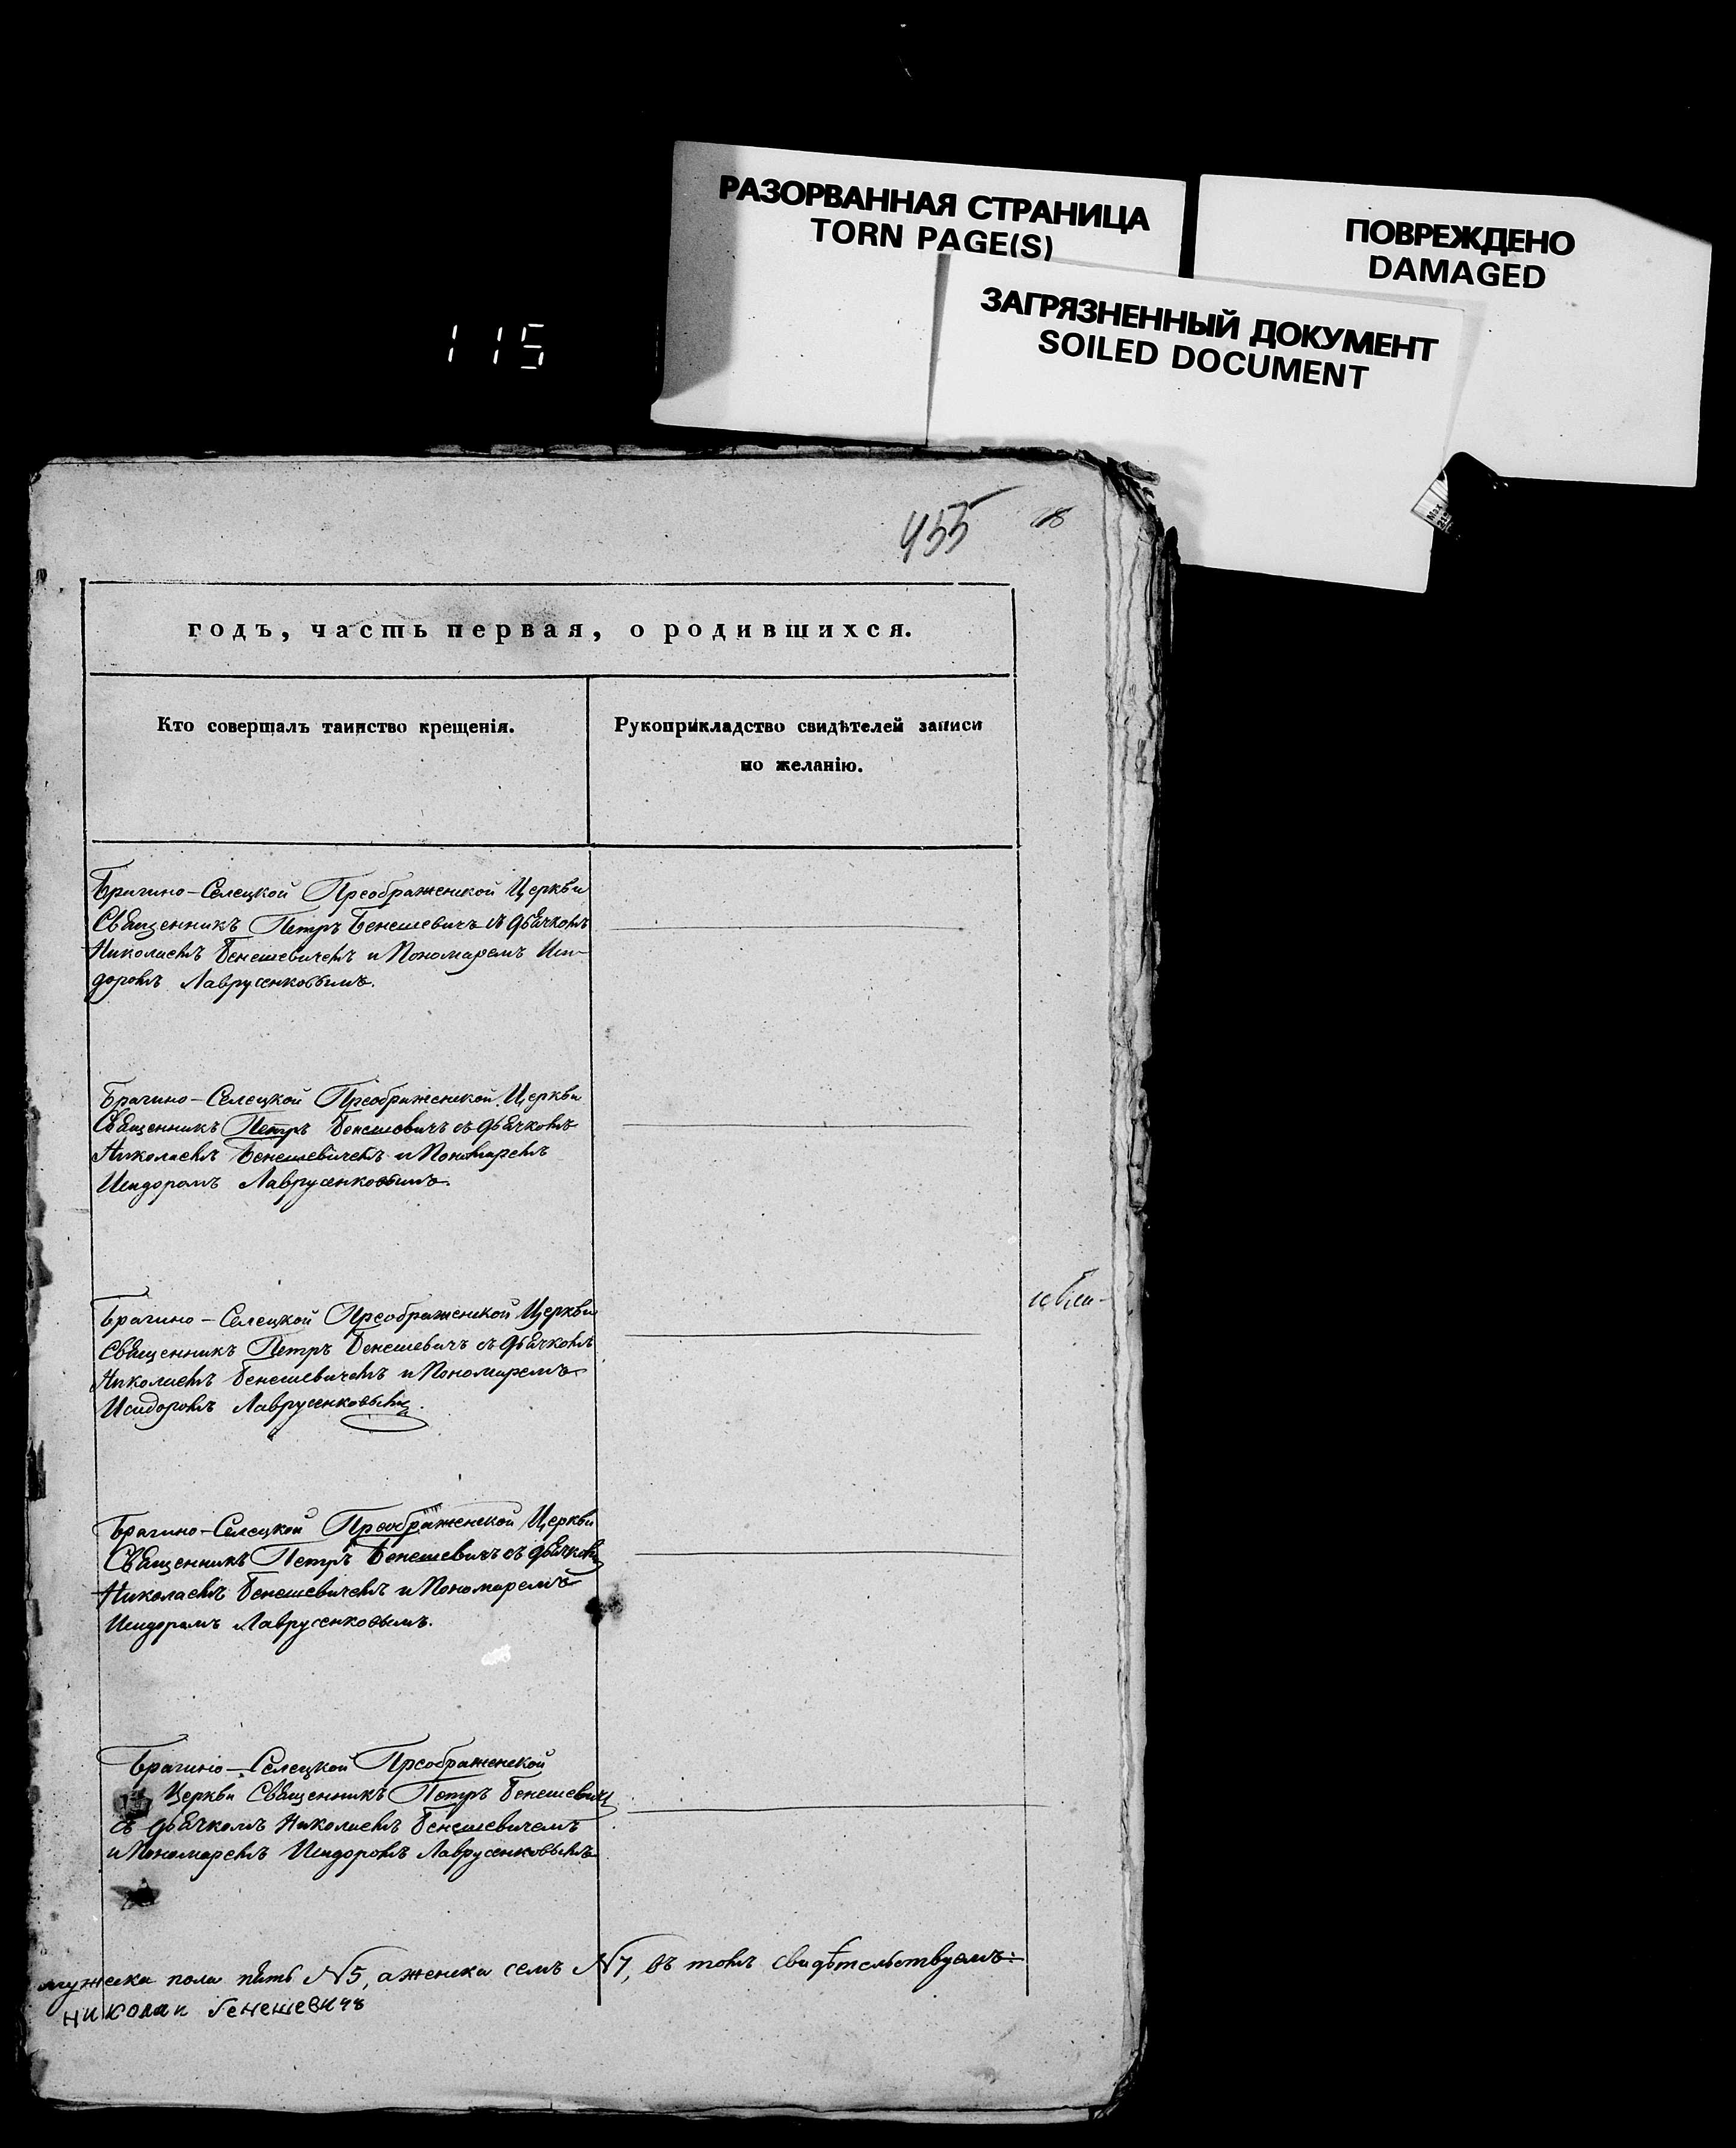 РАЗОРВАННАЯ СТРАНИЦА
TORN PAGE(S)
ПОВРЕЖДЕНО
DAMAGED
ЗАГРЯЗНЕННЫЙ ДОКУМЕНТ
SOILED DOCUMENT
115
455
годъ, часть первая, о родившихся.
Кто совершалъ таинство крещенія.
Рукоприкладство свидѣтелей записи
по желанію.
Брагино-Селецкой Преображенской Церкви
Священникъ Петръ Бенешевичъ съ дьячкомъ
Николаемъ Бенешевичемъ и Пономаремъ Иси-
доромъ Лаврусенковымъ.
Брагино-Селецкой Преображенской Церкви
Священникъ Петръ Бенешевичъ съ дьячкомъ
Николаемъ Бенешевичемъ и Пономаремъ
Исидоромъ Лаврусенковымъ.
Брагино-Селецкой Преображенской Церкви
Священникъ Петръ Бенешевичъ съ дьячкомъ
Николаемъ Бенешевичемъ и Пономаремъ
Исидоромъ Лаврусенковымъ.
Брагино-Селецкой Преображенской Церкви
Священникъ Петръ Бенешевичъ съ дьячкомъ
Николаемъ Бенешевичемъ и Пономаремъ
Исидоромъ Лаврусенковымъ.
Брагино-Селецкой Преображенской
Церкви Священникъ Петръ Бенешевичъ
съ дьячкомъ Николаемъ Бенешевичемъ
и Пономаремъ Исидоромъ Лаврусенковымъ
мужеска пола пять №5, а женска семь №7, въ томъ свидѣтельствуемъ:
николаи бенешевичъ